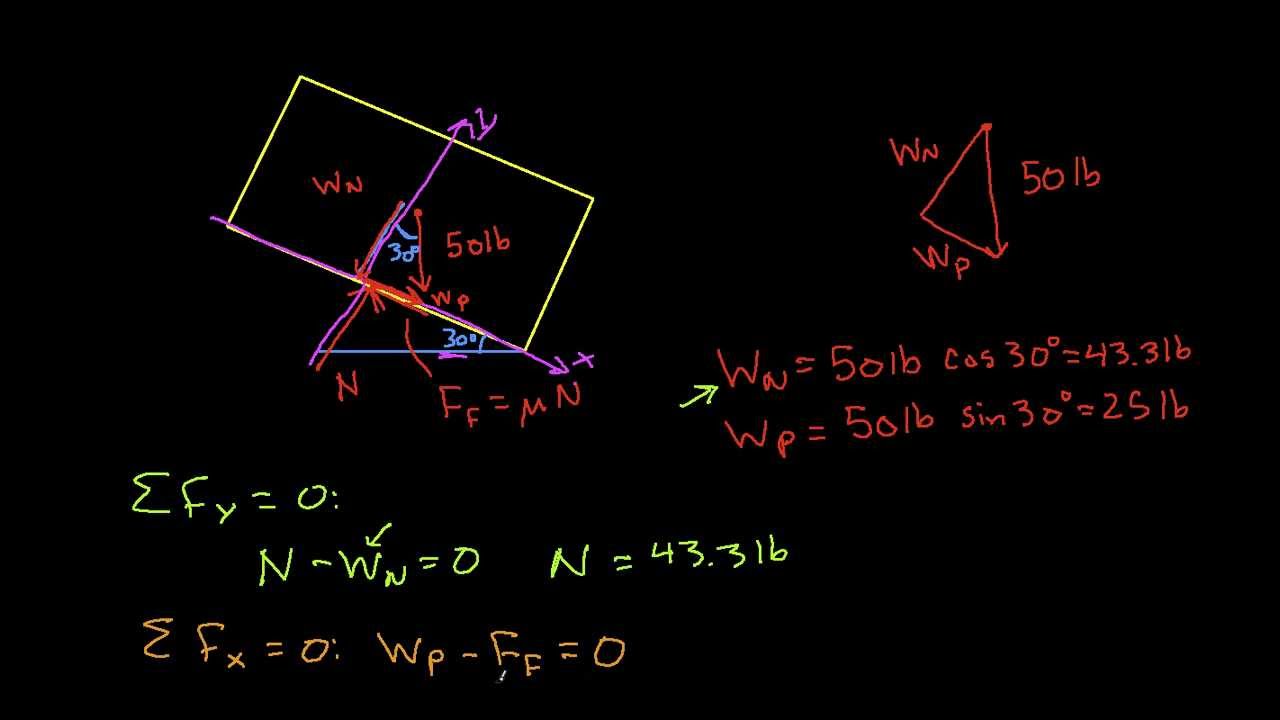 y
W_N
30°
50lb
W_P
30°
x
N
F_F = μN
W_N
50lb
W_P
W_N = 50lb cos 30° = 43.3lb
W_P = 50lb sin 30° = 25 lb
ΣF_y = 0:
N - W_N = 0 N = 43.3lb
ΣF_x = 0: W_P - F_F = 0